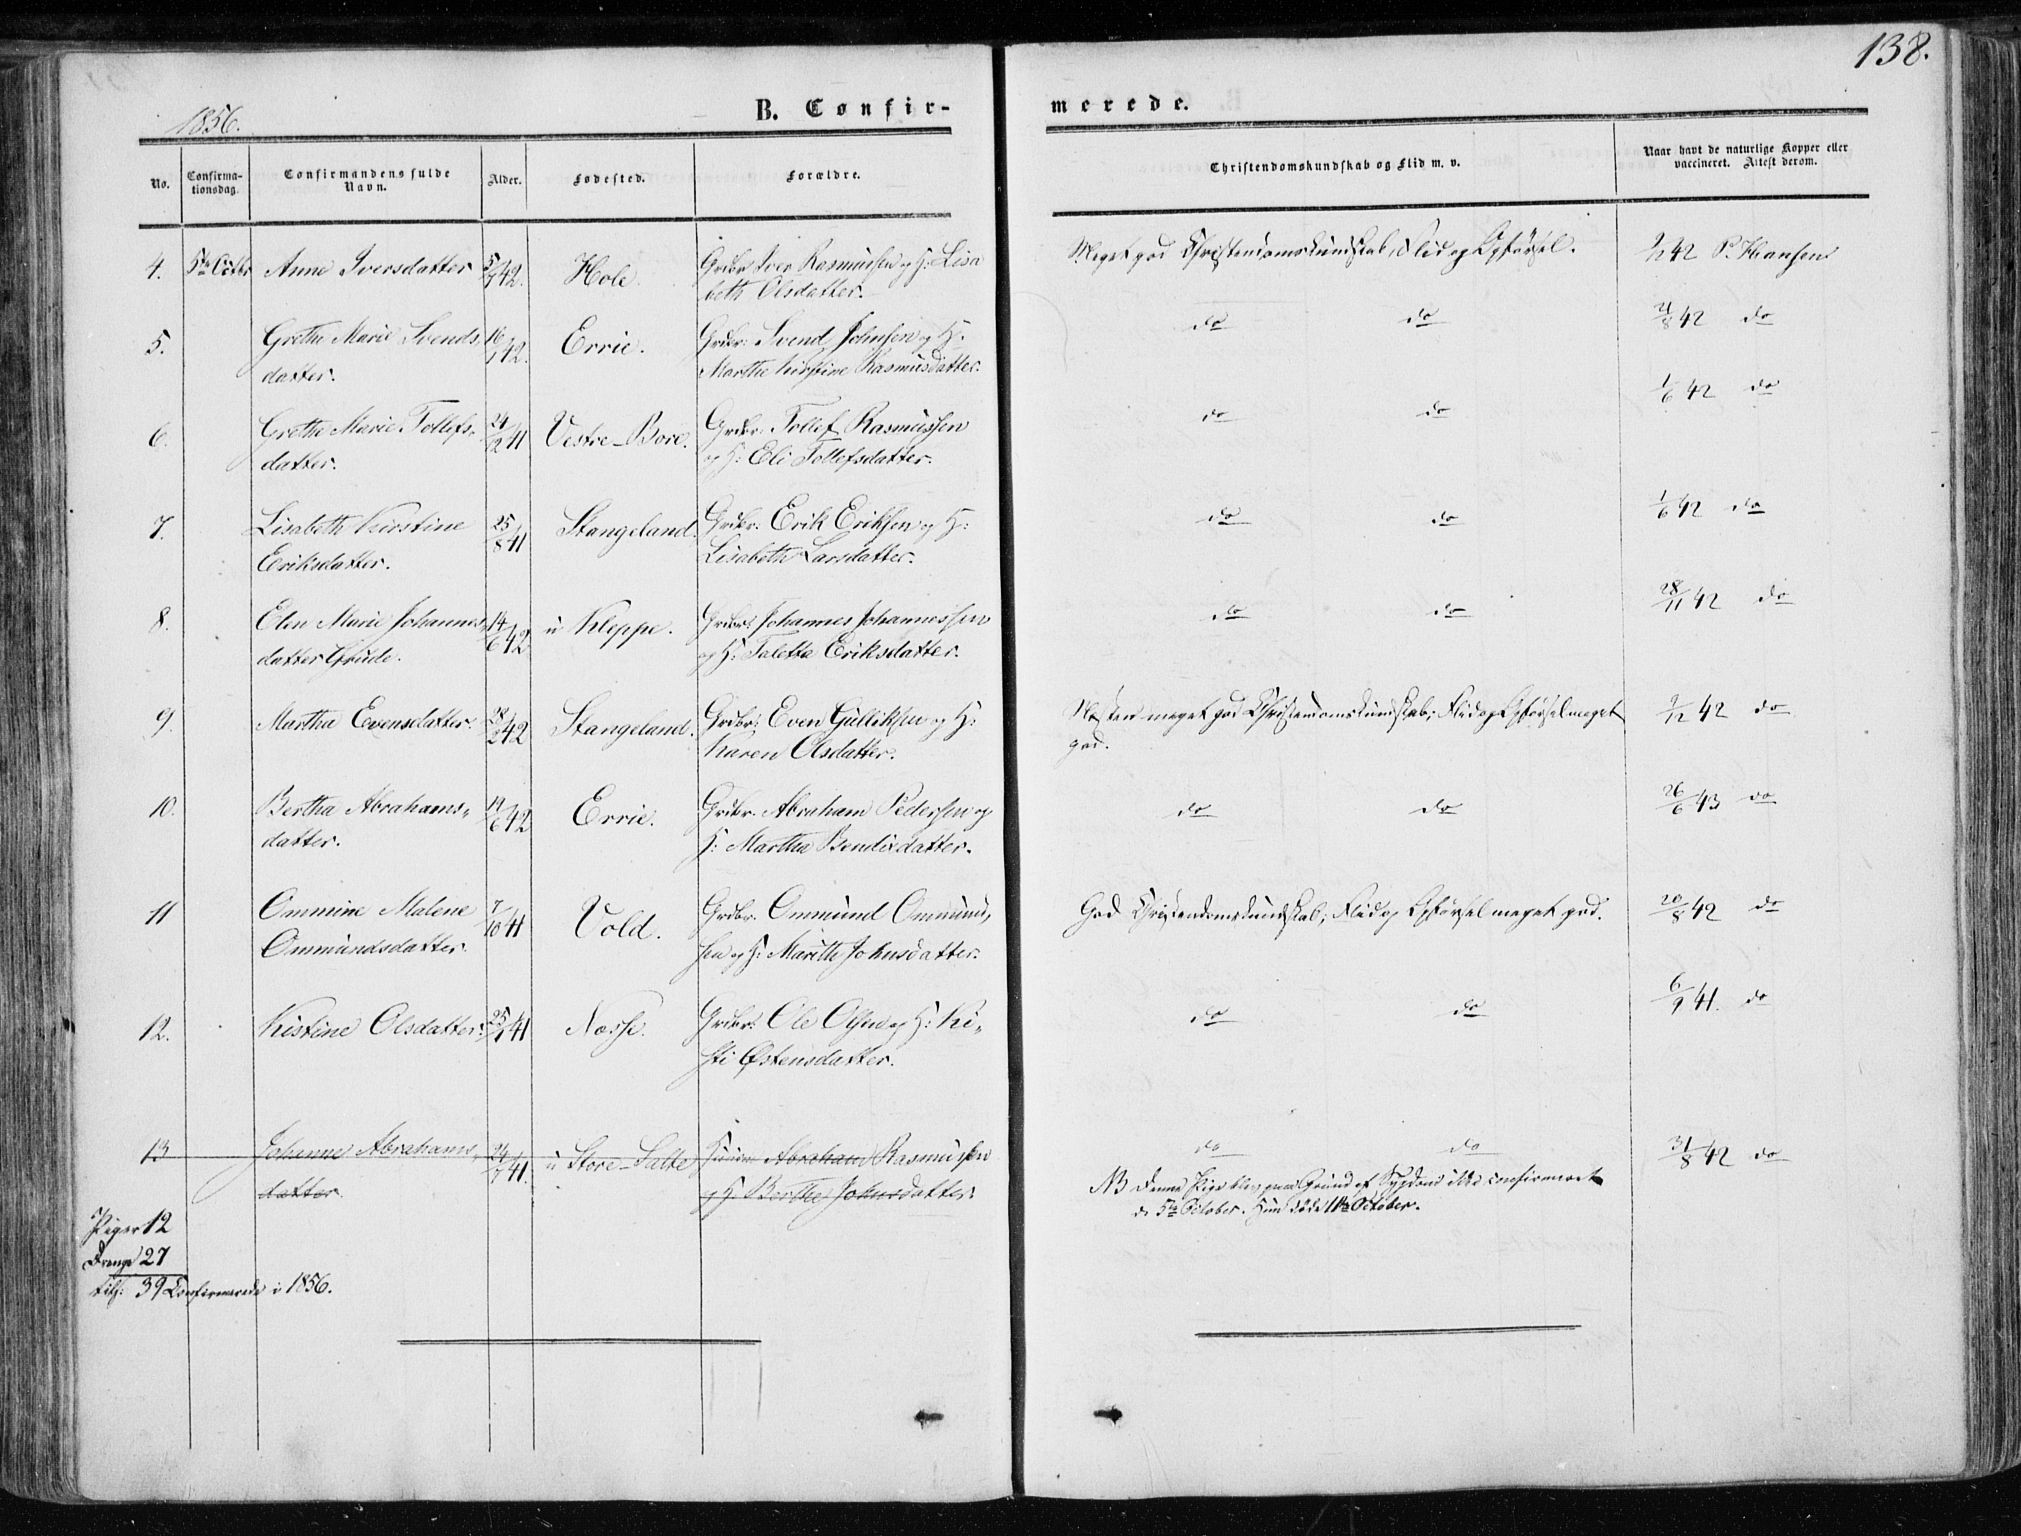 138.
1856.
B. Confir-
merede.
No.
Confirma-
tionsdag.
Confirmandens fulde
Navn.
Alder.
Fødested.
Forældre.
Christendomskundskab og Flid m. v.
Naar havt de naturlige Kopper eller
vaccineret. Attest derom.
4. 5te Octbr Anne Iversdatter 42. Hole. Grdbr Iver Rasmussen og H: Lisa
beth Olsdatter.
Meget god Christendomskundskab, Flid og Opførsel. 42 P. Hansen
5. Grethe Marie Svends 16/1 42. Errie. Grdbr: Svend Johnsen og H:
datter. Marthe Kirstine Rasmusdatter.
do do 21/8 42 do
6. Grethe Marie Tollefs- 24/12 41 Vestre-Bore. Grdbr: Tollef Rasmussen
datter. og H: Eli Tollefsdatter.
do do 1/6 42 do
7. Lisabeth Kirstine 25/8 41 Stangeland. Grdbr: Erik Eriksen og H:
Eriksdatter. Lisabeth Larsdatter.
do do 1/6 42 do
8. Elen Marie Johannes- 14/6 42 u Kleppe. Grdbr: Johannes Johannessen
datter Grude. og H: Taletta Eriksdatter.
do do 28/11 42 do
9. Martha Evensdatter. 28/2 42 Stangeland. Grdbr: Even Gulliksen og H:
Karen Olsdatter.
Næsten meget god Christendomskundskab; Flid og Opførsel meget
god.
9/12 42 do
10. Bertha Abrahams- 14/6 42 Errie. Grdbr. Abraham Pedersen og
datter. H: Martha Bendixdatter.
do do 26/6 43 do
11 Ommine Malene 7/10 41 Vold. Grdbr. Ommund Ommund-
Ommundsdatter. sen og H: Marithe Johnsdatter.
God Christendomskundskab; Flid og Opførsel meget god. 20/8 42 do
12. Kistine Olsdatter. 41 Næsse. Grdbr: Ole Olsen og H: Ki-
sti Østensdatter.
do do 6/9 41. do
13 Johanne Abrahams- 41. u Store-Salte Abraham Rasmussen
datter. og H: Berthe Johnsdatter.
do do 31/8 42 do
NB Denne Pige blev paa Grund af Sygdom ikke confirmeret
d. 5te October. Hun døde 11te October.
Piger 12
Drenge 27
tils: 39 Confirmerede i 1856.